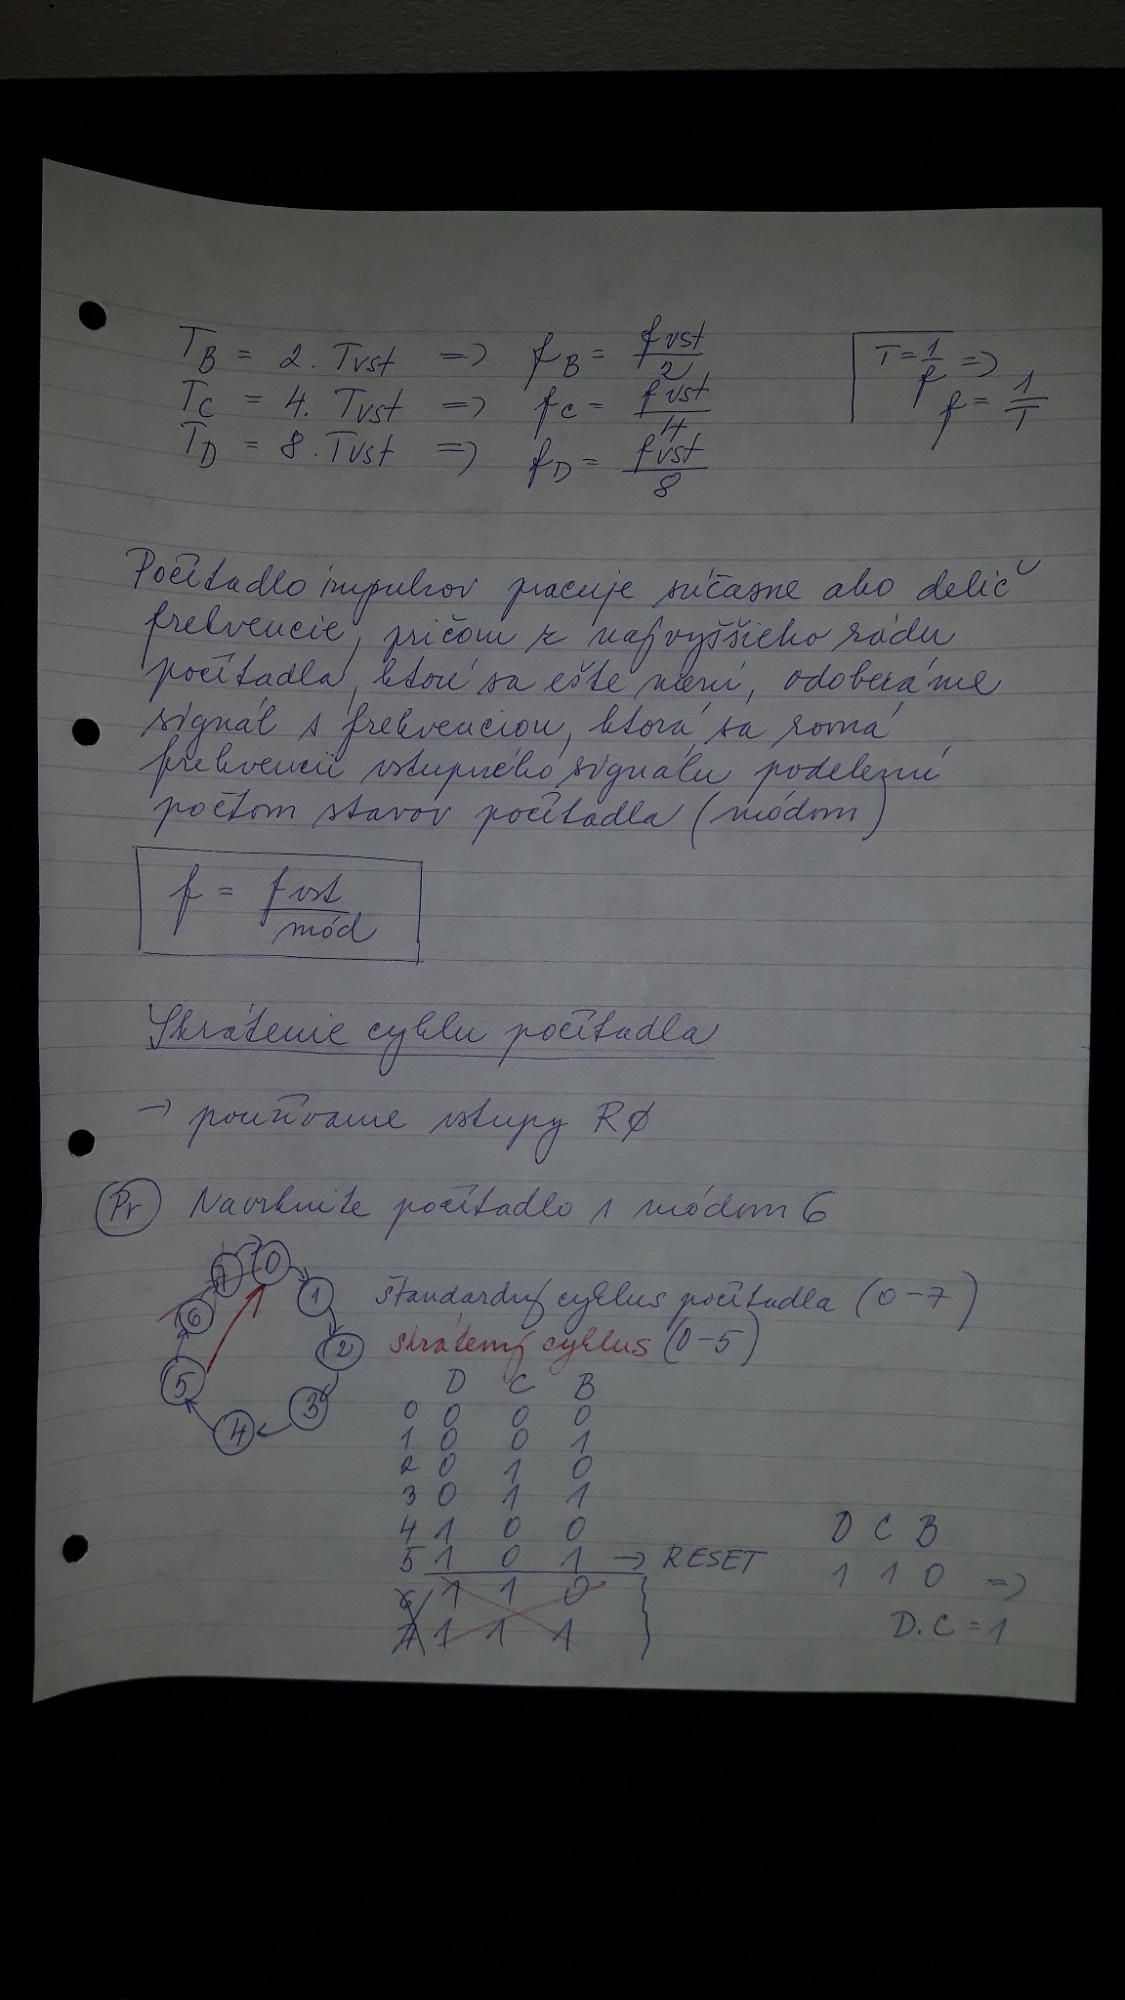 T_B = 2. Tvst => f_B = fvst/2
T = 1/f =>
f = 1/T
T_C = 4. Tvst => f_C = fvst/4
T_D = 8. Tvst => f_D = fvst/8
Počítadlo impulzov pracuje súčasne ako delič
frekvencie, pričom z najvyššieho rádu
počítadla, ktoré sa ešte mení, odoberáme
signál s frekvenciou, ktorá sa rovná
frekvencii vstupného signálu podelení
počtom stavov počítadla (módom)
f = fvst/mód
Skrátenie cyklu počítadla
→ používame vstupy RØ
Pr Navrhnite počítadlo s módom 6
0 1 2 3 4 5 6 7
štandardný cyklus počítadla (0-7)
skrátený cyklus (0-5)
D C B
0 0 0 0
1 0 0 1
2 0 1 0
3 0 1 1
4 1 0 0
5 1 0 1 → RESET
6 1 1 0
7 1 1 1
D C B
1 1 0 =>
D.C = 1